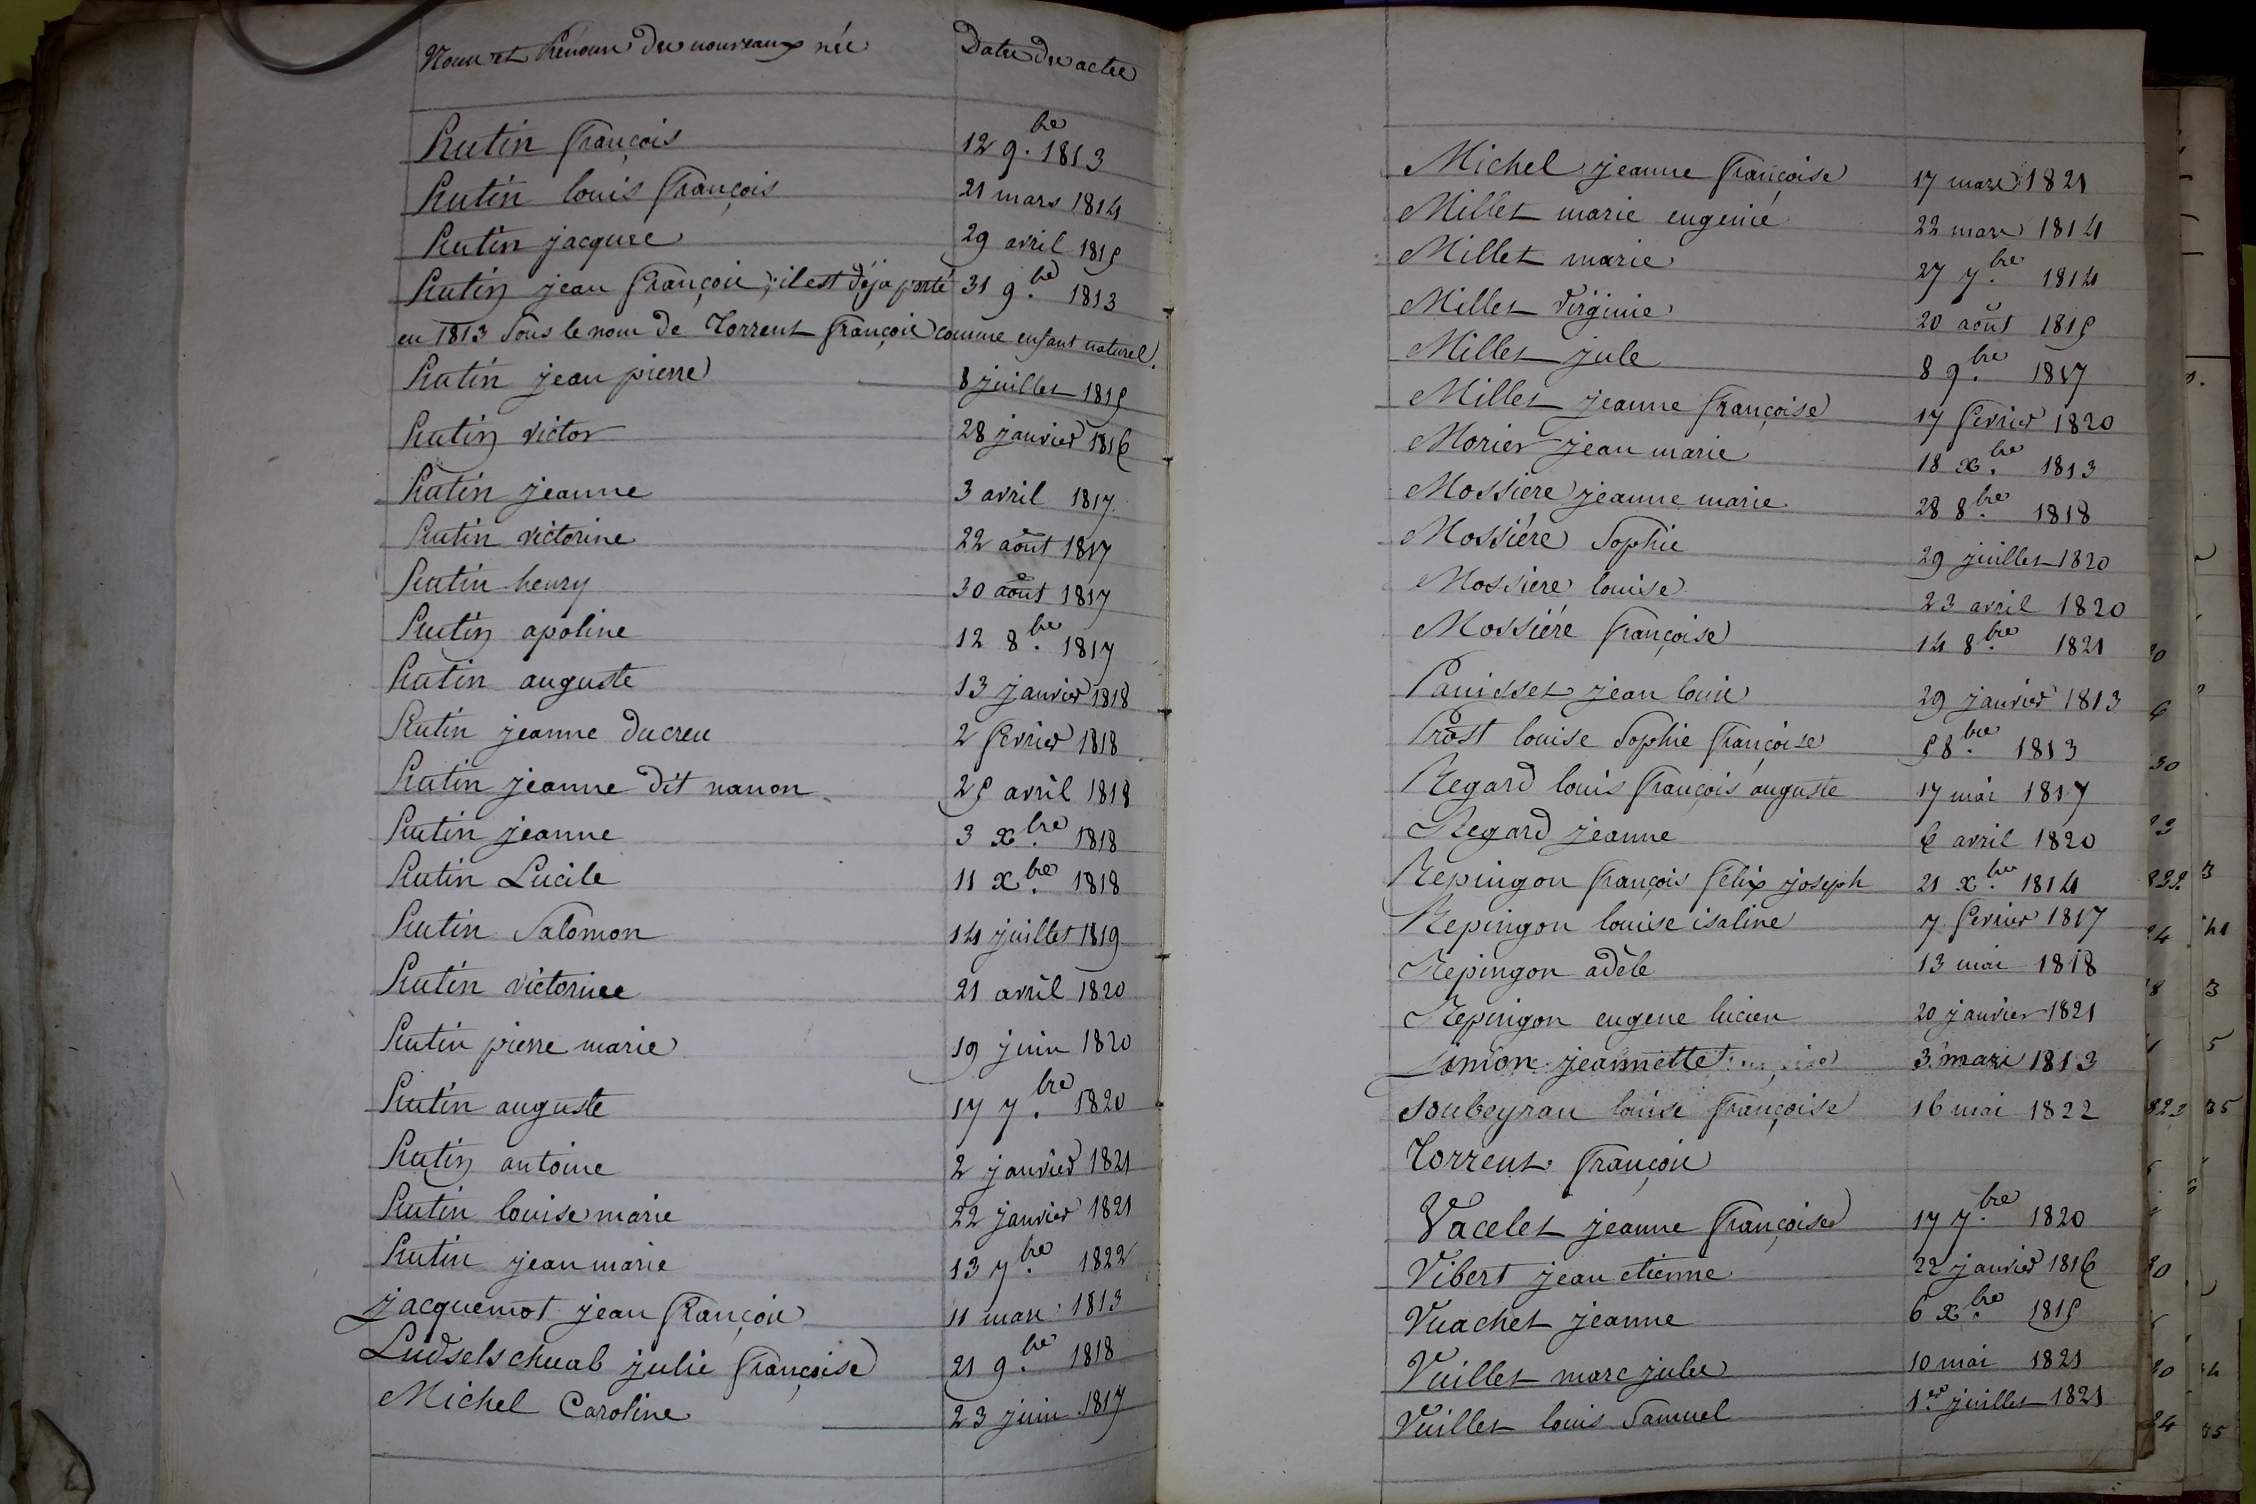 Noms et Prénoms des nouveaux nés Dates des actes
Hutin françois 12 9.bre 1813
Hutin louis françois 21 mars 1814
Hutin jacques 29 avril 1815
Hutin jean françois; il est déja porté 31 9.bre 1813
en 1813 sous le nom de Torrent françois comme enfant naturel.
Hutin jean pierre 8 juillet 1815
Hutin victor 28 janvier 1816
Hutin jeanne 3 avril 1817
Hutin victorine 22 août 1817
Hutin henry 30 août 1817
Hutin apoline 12 8.bre 1817
Hutin auguste 13 janvier 1818
Hutin jeanne ducreu 2 fevrier 1818
Hutin jeanne dit nanon 25 avril 1818
Hutin jeanne 3 x.bre 1818
Hutin Lucile 11 x.bre 1818
Hutin Salomon 14 juillet 1819
Hutin victorine 21 avril 1820
Hutin pierre marie 19 juin 1820
Hutin auguste 17 7.bre 1820
Hutin antoine 2 janvier 1821
Hutin louise marie 22 janvier 1821
Hutin jean marie 13 7.bre 1822
jacquemot jean françois 11 mars 1813
Ludselschuab julie françoise 21 9.bre 1818
Michel Caroline 23 juin 1817
Michel jeanne françoise 17 mars 1821
Millet marie eugenie 22 mars 1814
Millet marie 27 7.bre 1814
Millet virginie 20 août 1815
Millet jule 8 9.bre 1817
Millet jeanne françoise 17 fevrier 1820
Morier jean marie 18 x.bre 1813
Mossiere jeanne marie 28 8.bre 1818
Mossiére Sophie 29 juillet 1820
Mossiere louise 23 avril 1820
Mossiére françoise 14 8.bre 1821
Panisset jean louis 29 janvier 1813
Prost louise Sophie françoise 5 8.bre 1813
Regard louis françois auguste 17 mai 1817
Regard jeanne 6 avril 1820
Repingon françois félix joseph 21 x.bre 1814
Repingon louise isaline 7 fevrier 1817
Repingon adèle 13 mai 1818
Repingon eugene lucien 20 janvier 1821
Simon jeannette 3 mars 1813
Soubeyran louise françoise 16 mai 1822
Torrent françois
Vacelet jeanne françoise 17 7.bre 1820
Vibert jean etienne 22 janvier 1816
Vuachet jeanne 6 x.bre 1815
Vuillet marc jules 10 mai 1821
Vuillet louis Samuel 1er juillet 1821